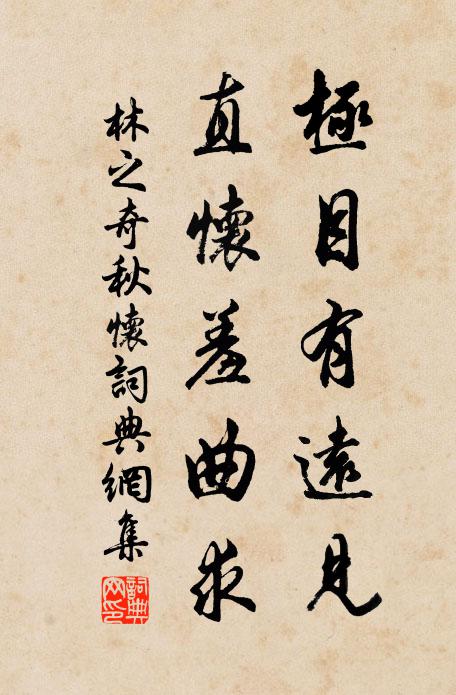 極目有遠見
直懷羞曲求
林之奇秋懷詞典網集
詞典網印